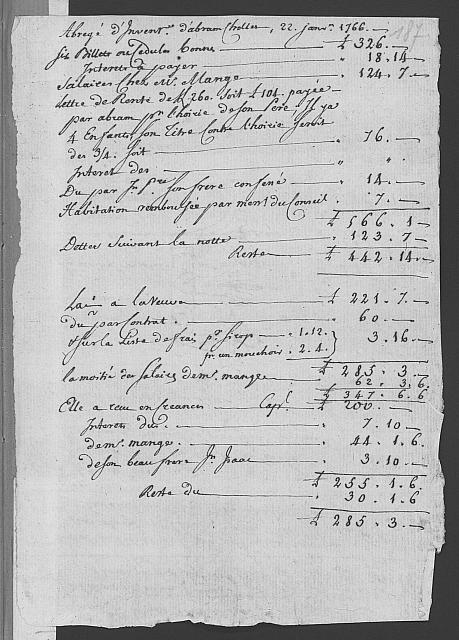 Abregé d'Invent.re d'abram Chollet, 22. janv.r 1766.
187
six Billets ou Cedules bonnes £ 326. —
Interets à payer " 18. 14 —
Salaires Chez Mr. Mange " 124. 7 —
Lettre de Rente de £ 260. soit £ 104. payée
par abram pr. l'hoirie de son Pere, Il y a
4 Enfants, son Titre Contre l'hoirie seroit
des 3/4. soit " 76. —
Interet des " " "
Du par Jn. son frere " 14. —
Habitation remboursée par mess.rs du Conseil " 7. —
£ 566. 1 —
Dettes suivant la notte " 123. 7 —
Reste £ 442. 14 —
La a la Veuve £ 221. 7. —
du par Contrat. " 60. —
sur la Liste de frais 1. 12. } 3. 16 —
pr. un mouchoir " 2. 4.
£ 285. 3. —
la moitié des Salaires de mr. mange 62. 3. 6.
£ 347. 6. 6
Elle a reçu en creances Cap.l £ 200. —
Interets du " 7. 10 —
de mr. mange. " 44. 1. 6.
de son beau frere Jn. Isaac " 3. 10 —
£ 255. 1. 6.
Reste du " 30. 1. 6
£ 285. 3 —